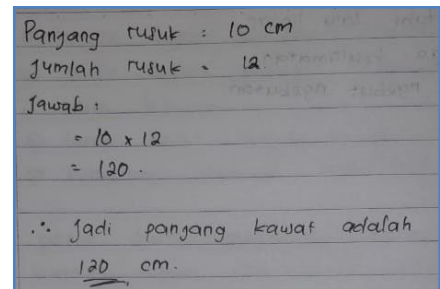 Panjang rusuk : 10 cm
Jumlah rusuk = 12
Jawab :
= 10 x 12
= 120.
∴ Jadi panjang kawat adalah
120 cm.